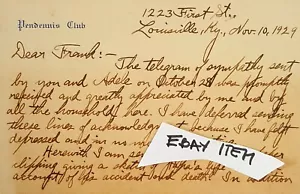 Pendennis Club
1223 First St.,
Louisville, Ky., Nov. 10, 1929
Dear Friend:-
The telegram of sympathy sent
by you and Adele on October 28 was promptly
received and greatly appreciated by me and by
all the household here. I have deferred sending
these lines of acknowledg because I have felt
depressed and
Herewith I am se
clipping giving a sh Papa's life
account of life accident and death. In addition
EBAY ITEM